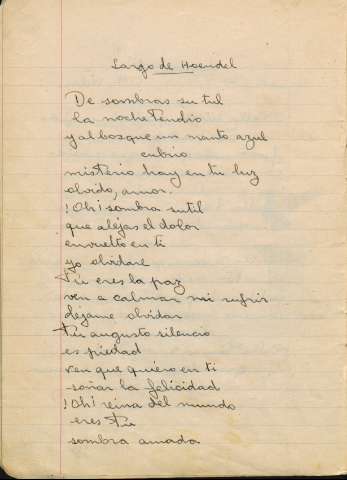 Largo de Hoendel
De sombras su tul
la noche tendio
y al bosque un manto azul
cubrio
misterio hay en tu luz
olvido, amor.
!Oh! sombra sutil
que alejas el dolor
envuelto en ti
yo olvidare
Tu eres la paz
ven a calmar mi sufrir
dejame olvidar
Tu augusto silencio
es piedad
ven que quiero en ti
soñar la felicidad
!Oh! reina del mundo
eres tu
sombra amada